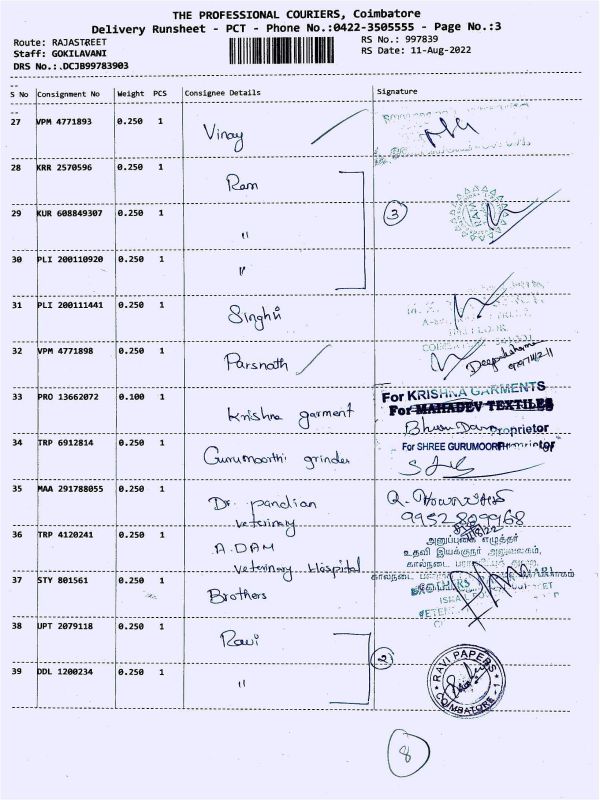 THE PROFESSIONAL COURIERS, Coimbatore
Delivery Runsheet - PCT - Phone No.:0422-3505555 - Page No.:3
Route: RAJASTREET
RS No.: 997839
Staff: GOKILAVANI
RS Date: 11-Aug-2022
DRS No.:.DCJB99783903
S No Consignment No Weight PCS Consignee Details Signature
27 VPM 4771893 0.250 1 Vinay
28 KRR 2570596 0.250 1 Ram
3
29 KUR 608849307 0.250 1 "
RAVI
30 PLI 200110920 0.250 1 "
31 PLI 200111441 0.250 1 Singhvi
32 VPM 4771898 0.250 1 Parsnath
33 PRO 13662072 0.100 1 Krishna garment
For KRISHNA GARMENTS
For MAHADEV TEXTILES
Proprietor
34 TRP 6912814 0.250 1 Gurumoorthi grinder
For SHREE GURUMOORTHI
35 MAA 291788055 0.250 1 Dr. pandian
veterinary
9952809968
36 TRP 4120241 0.250 1 A.DAM
veterinary Hospital
அனுப்புகை எழுத்தர்
உதவி இயக்குநர் அலுவலகம்,
கால்நடை
37 STY 801561 0.250 1 Brothers
38 UPT 2079118 0.250 1 Ravi
2
39 DDL 1200234 0.250 1 "
RAVI PAPERS
COIMBATORE - 1
8